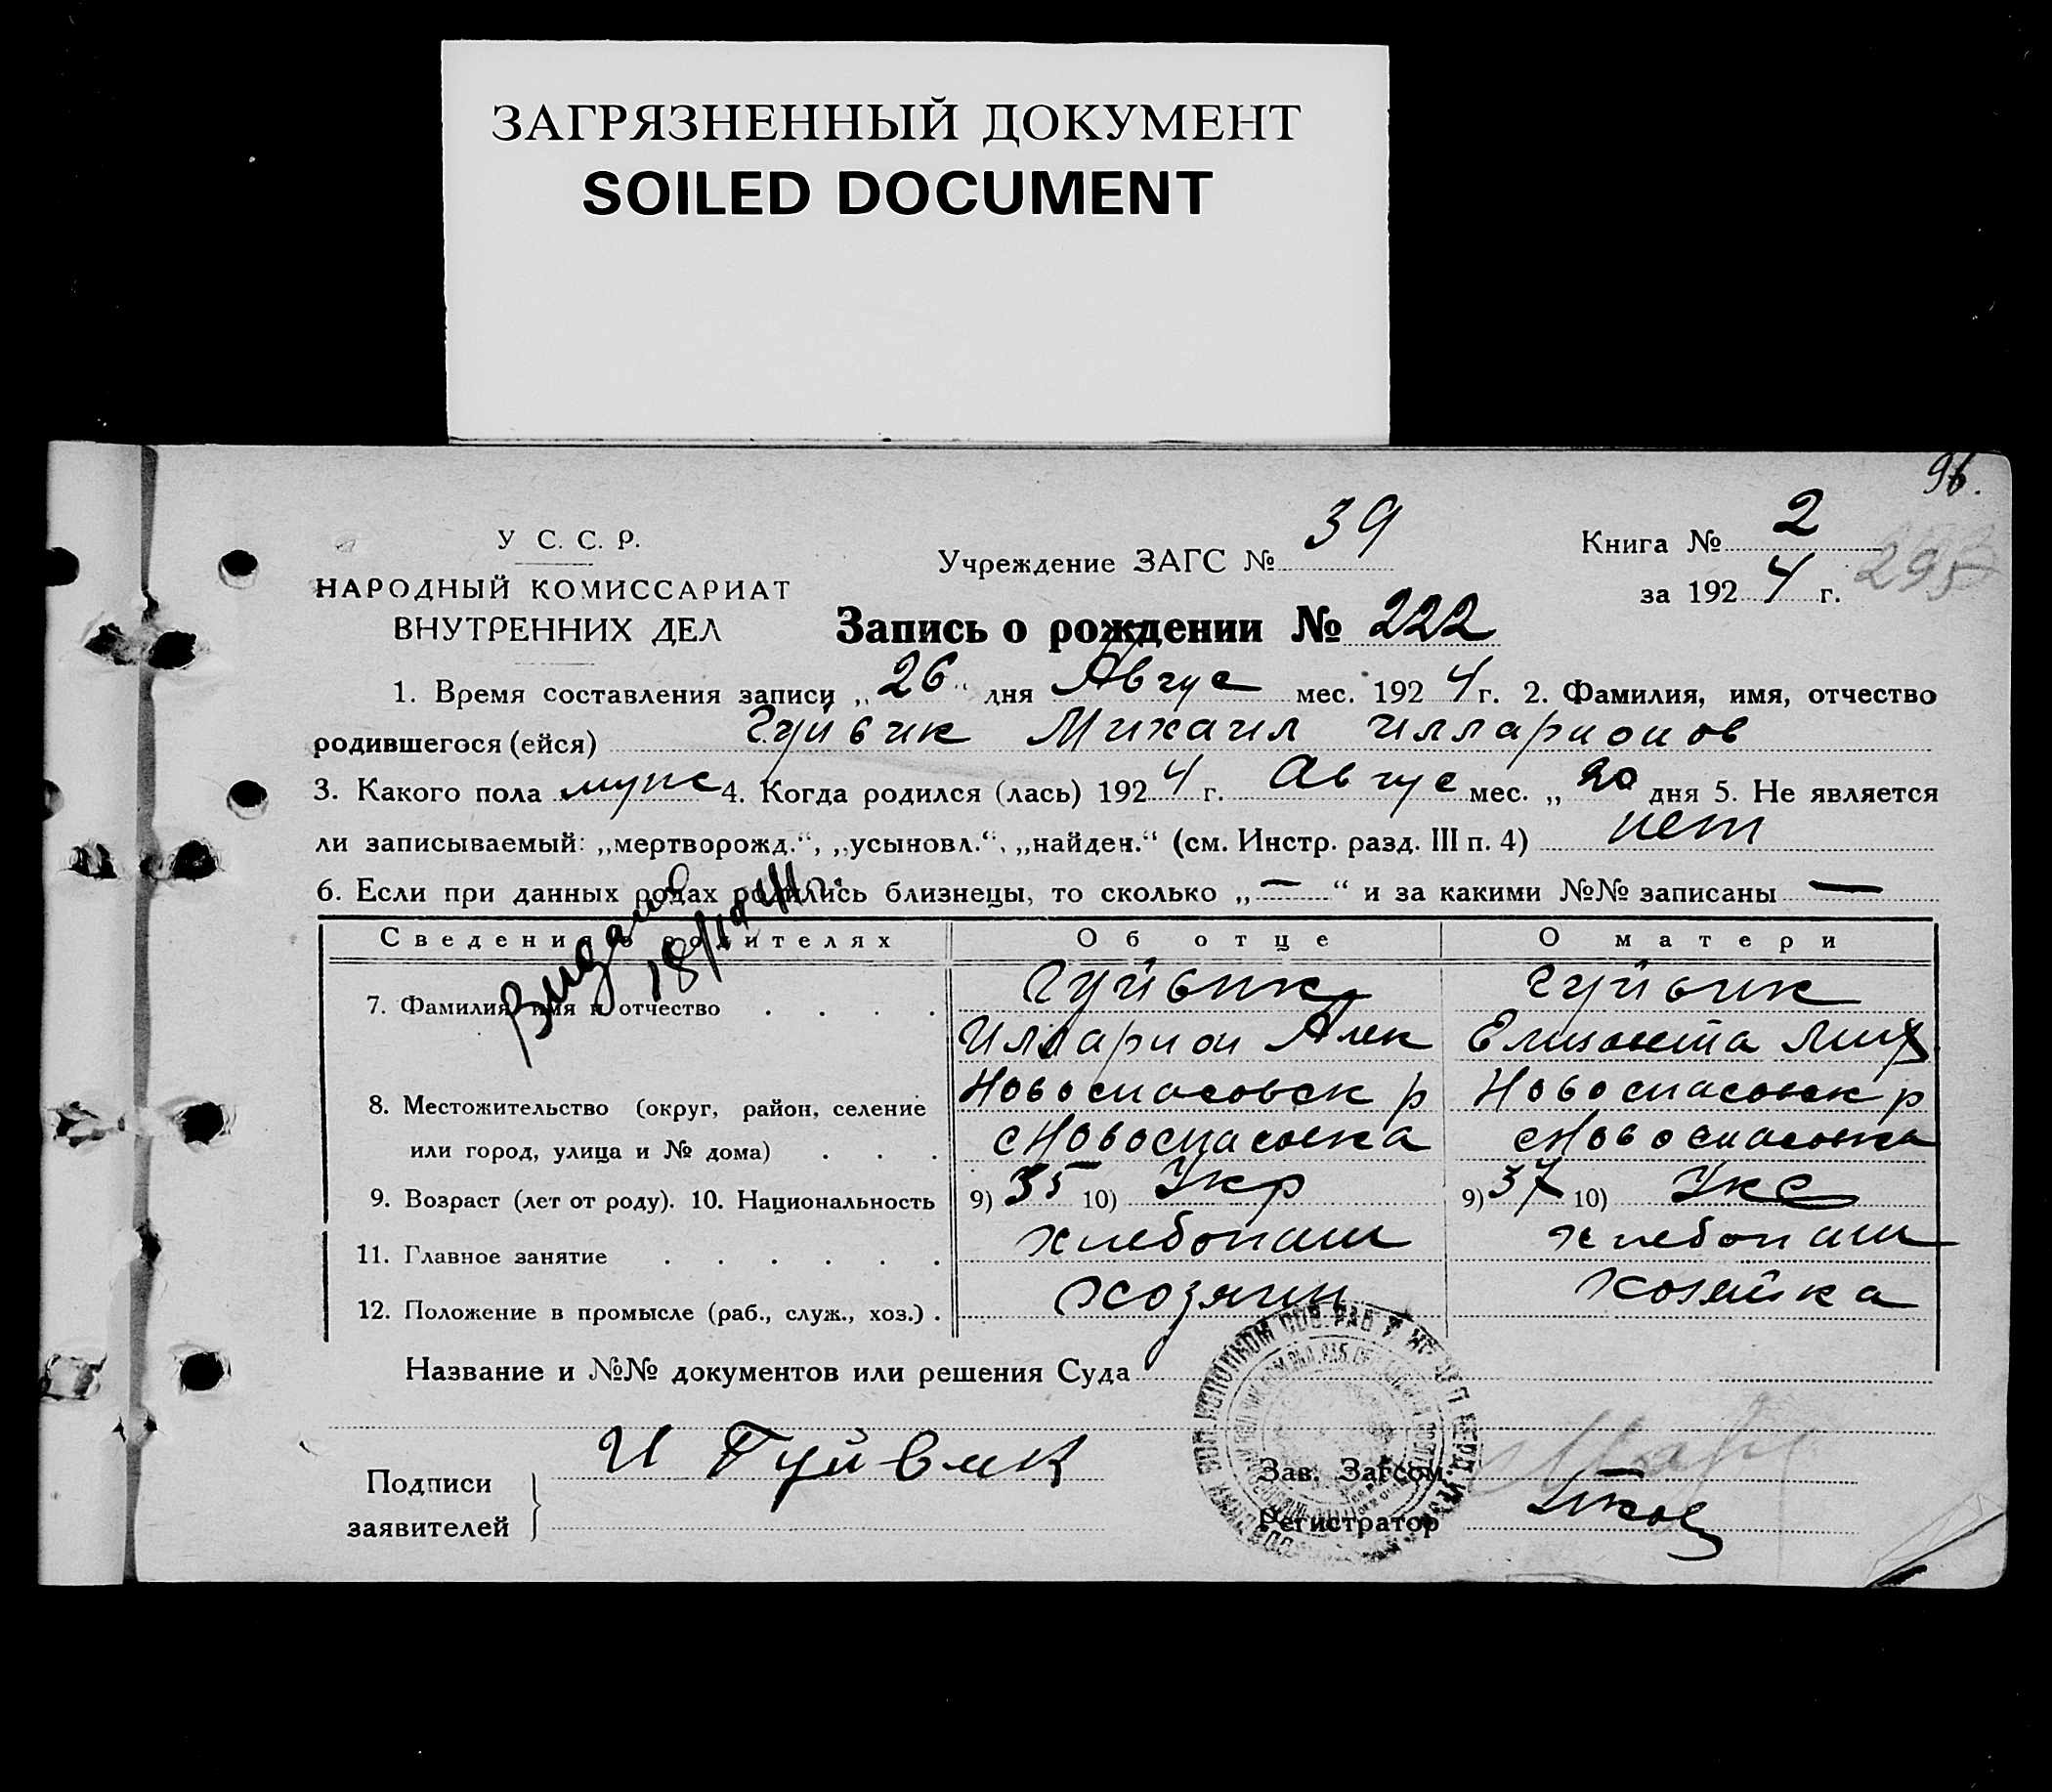 ЗАГРЯЗНЕННЫЙ ДОКУМЕНТ
SOILED DOCUMENT
96.
У С. С. Р.
НАРОДНЫЙ КОМИССАРИАТ
ВНУТРЕННИХ ДЕЛ
Учреждение ЗАГС № 39
Книга № 2
за 1924 г.
295
Запись о рождении № 222
1. Время составления записи „26“ дня Авгус мес. 1924 г. 2. Фамилия, имя, отчество
родившегося (ейся) Гуйвик Михаил Илларионов
3. Какого пола муж 4. Когда родился (лась) 1924 г. Авгус мес. „20 дня 5. Не является
ли записываемый: „мертворожд.“, „усыновл.“, „найден.“ (см. Инстр. разд. III п. 4) нет
6. Если при данных родах родились близнецы, то сколько „—“ и за какими №№ записаны —
Сведения о родителях Об отце О матери
7. Фамилия, имя и отчество . . . . Гуйвик Гуйвик
Илларион Алек Елизавета Мих
8. Местожительство (округ, район, селение Новоспасовск р Новоспасовск р
или город, улица и № дома) . . . с Новоспасовка с Новоспасовка
9. Возраст (лет от роду). 10. Национальность 9) 35 10) Укр 9) 37 10) Укр
11. Главное занятие . . . . . . хлебопаш хлебопаш
12. Положение в промысле (раб., служ., хоз.) . хозяин хозяйка
Название и №№ документов или решения Суда
Подписи
заявителей
И Гуйвик
Зав. Загсом
Регистратор